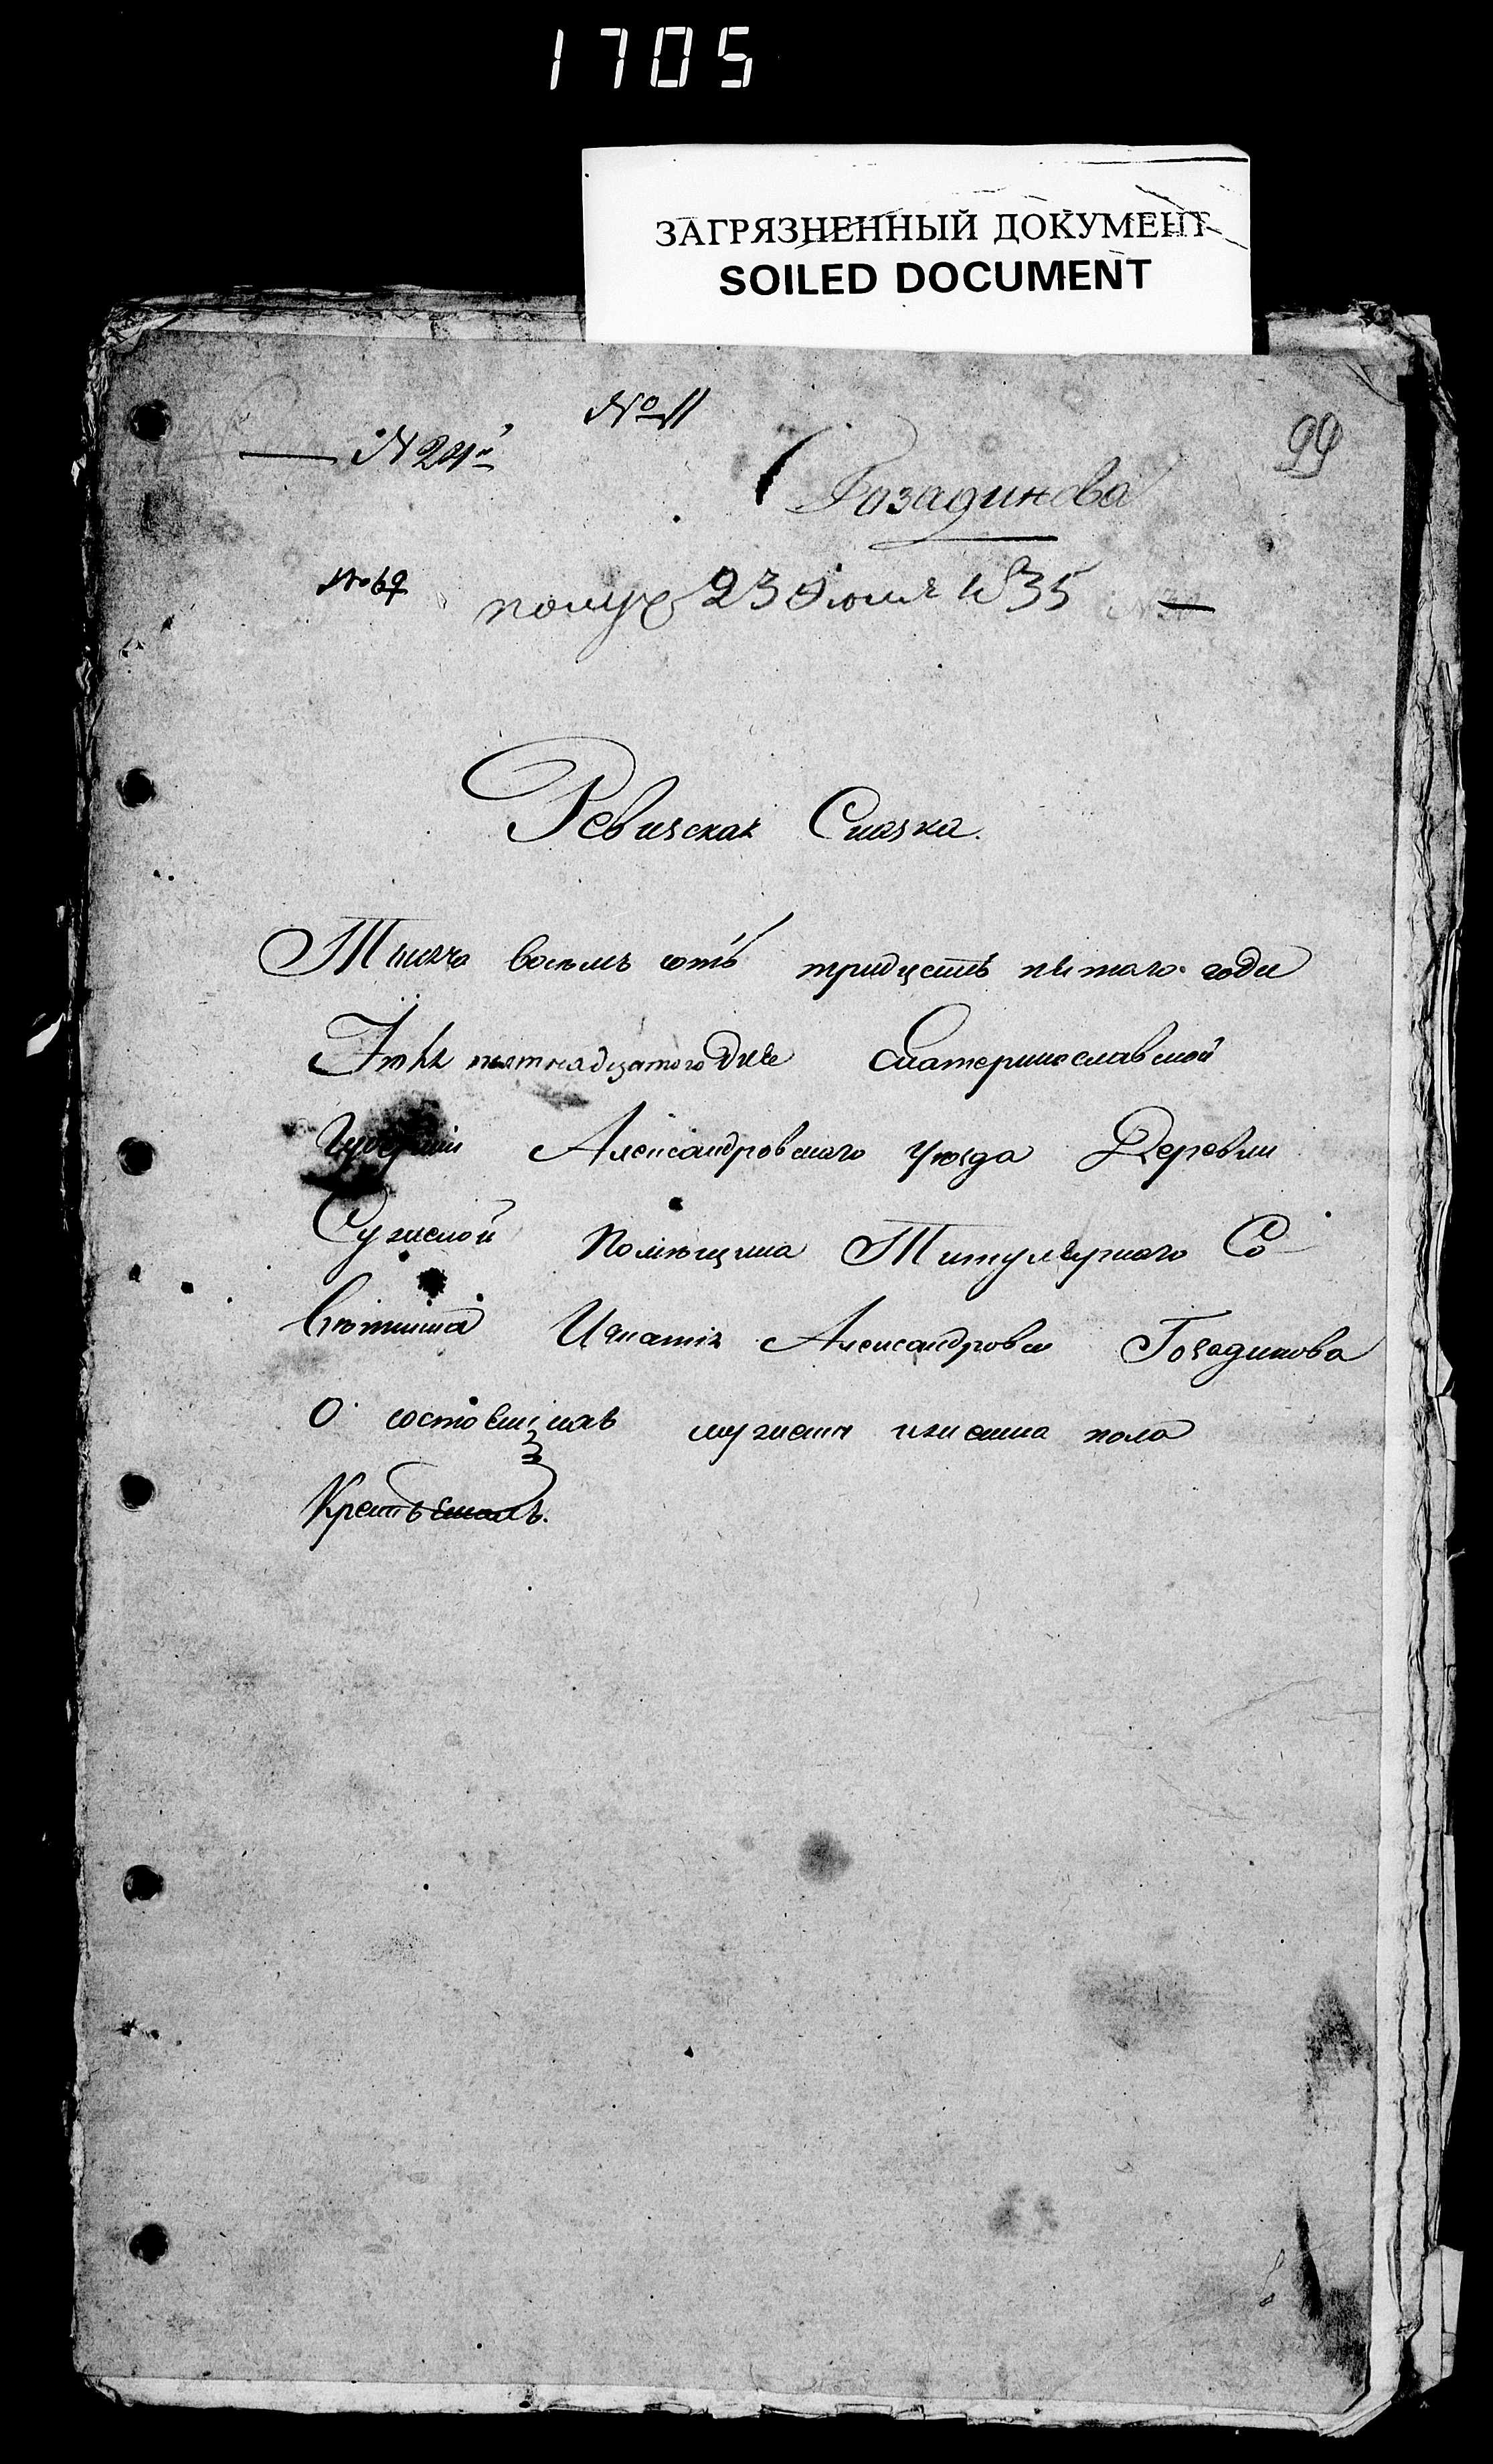 1705
ЗАГРЯЗНЕННЫЙ ДОКУМЕНТ
SOILED DOCUMENT
№ 11
№ 24
99
Гозадинова
№ 67
получ 23 Июля 1835
Ревизская Сказка.
Тысяча восемь сотъ тридцать пятаго года
пятнадцатого дня Екатеринославской
Губерніи Александровскаго уѣзда Деревни
Суженой Помѣщика Титулярнаго Со-
вѣтника Игнатія Александрова Гозадинова
О состоящихъ мужеска и женска пола
Крестьянахъ.